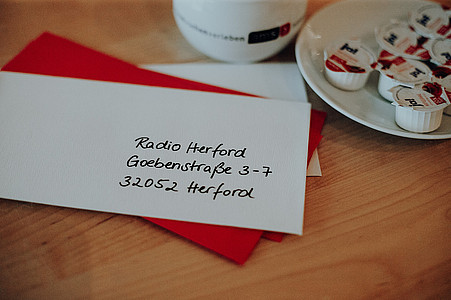 Radio Herford
Goebenstraße 3-7
32052 Herford